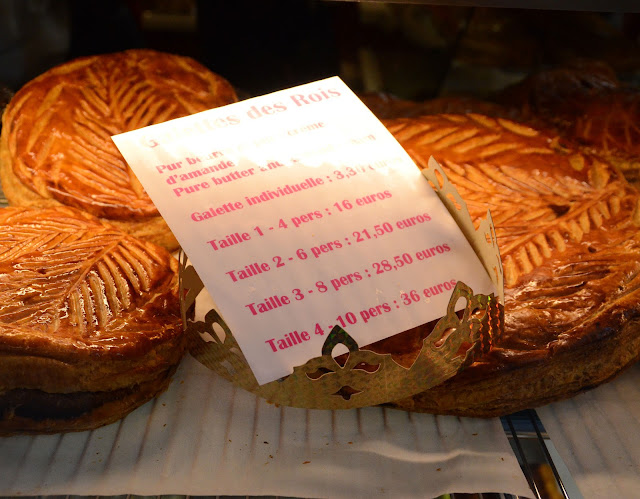 des Rois
Pur
d'amande
Pure butter
Galette individuelle :
Taille 1 - 4 pers : 16 euros
Taille 2 - 6 pers : 21,50 euros
Taille 3 - 8 pers : 28,50 euros
Taille 4 - 10 pers : 36 euros